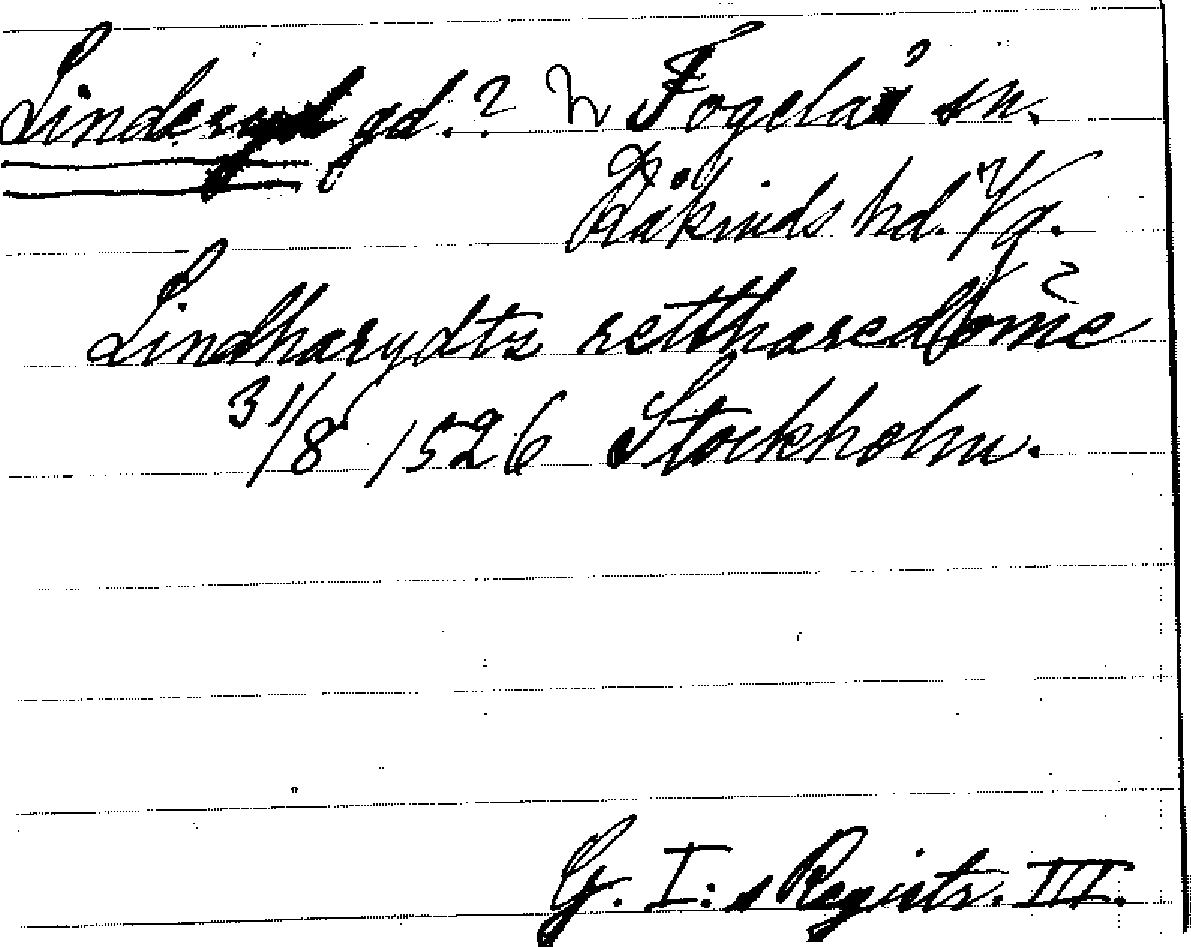 Linderyd gd.? Fogelås sn.
Kåkinds hd. Vg.
Lindharydts retthared
31/8 1526 Stockholm.
G. I:s Registr. III.